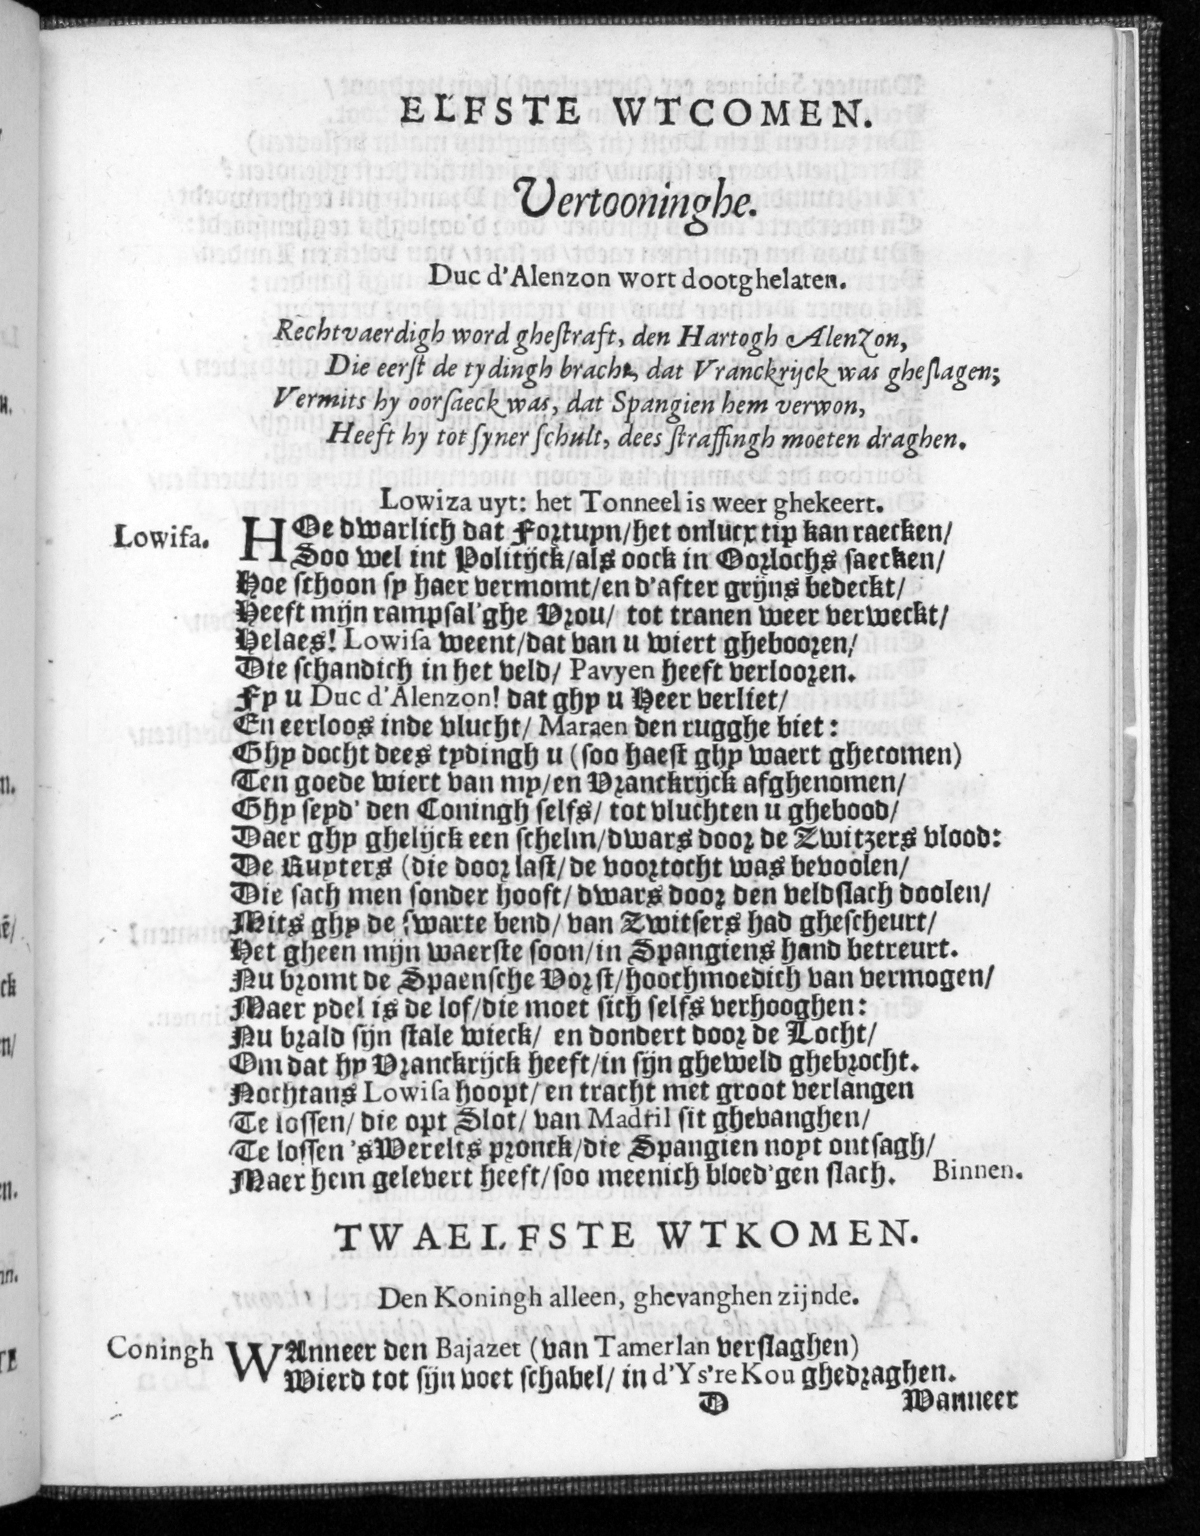 ELFSTE WTCOMEN.
Vertooninghe.
Duc d'Alenzon wort dootghelaten.
Rechtvaerdigh word gheſtraft, den Hartogh Alenzon,
Die eerſt de tydingh bracht, dat Vranckrijck was gheſlagen;
Vermits hy oorſaeck was, dat Spangien hem verwon,
Heeft hy tot ſyner ſchult, dees ſtraffingh moeten draghen.
Lowiza uyt: het Tonneel is weer ghekeert.
Lowiſa. HOe dwarlich dat Fortuyn/het onlucx tip kan raecken/
Soo wel int Politijck/als oock in Oorlochs ſaecken/
Hoe ſchoon ſy haer vermomt/en d'after grijns bedeckt/
Heeft mijn rampſal'ghe Vrou/ tot tranen weer verweckt/
Helaes! Lowiſa weent/dat van u wiert ghebooren/
Die ſchandich in het veld/ Pavyen heeft verlooren.
Fy u Duc d'Alenzon! dat ghy u Heer verliet/
En eerloos inde vlucht/ Maraen den rugghe biet:
Ghy docht dees tydingh u (ſoo haeſt ghy waert ghecomen)
Ten goede wiert van my/en Vranckrijck afghenomen/
Ghy ſeyd' den Coningh ſelfs/ tot vluchten u ghebood/
Daer ghy ghelijck een ſchelm/dwars door de Zwitzers vlood:
De Ruyters (die door laſt/de voortocht was bevoolen/
Die ſach men ſonder hooft/ dwars door den veldſlach doolen/
Mits ghy de ſwarte bend/ van Zwitſers had gheſcheurt/
Het gheen mijn waerſte ſoon/in Spangiens hand betreurt.
Nu bromt de Spaenſche Vorſt/hoochmoedich van vermogen/
Maer ydel is de lof/die moet ſich ſelfs verhooghen:
Nu brald ſijn ſtale wieck/ en dondert door de Locht/
Om dat hy Vranckrijck heeft/in ſijn gheweld ghebrocht.
Nochtans Lowiſa hoopt/ en tracht met groot verlangen
Te loſſen/ die opt Slot/ van Madril ſit ghevanghen/
Te loſſen 'sWerelts pronck/die Spangien noyt ontſagh/
Maer hem gelevert heeft/ſoo meenich bloed'gen ſlach. Binnen.
TWAELFSTE WTKOMEN.
Den Koningh alleen, ghevanghen zijnde.
Coningh WAnneer den Bajazet (van Tamerlan verſlaghen)
Wierd tot ſijn voet ſchabel/ in d'Ys're Kou ghedraghen.
D Wanneer